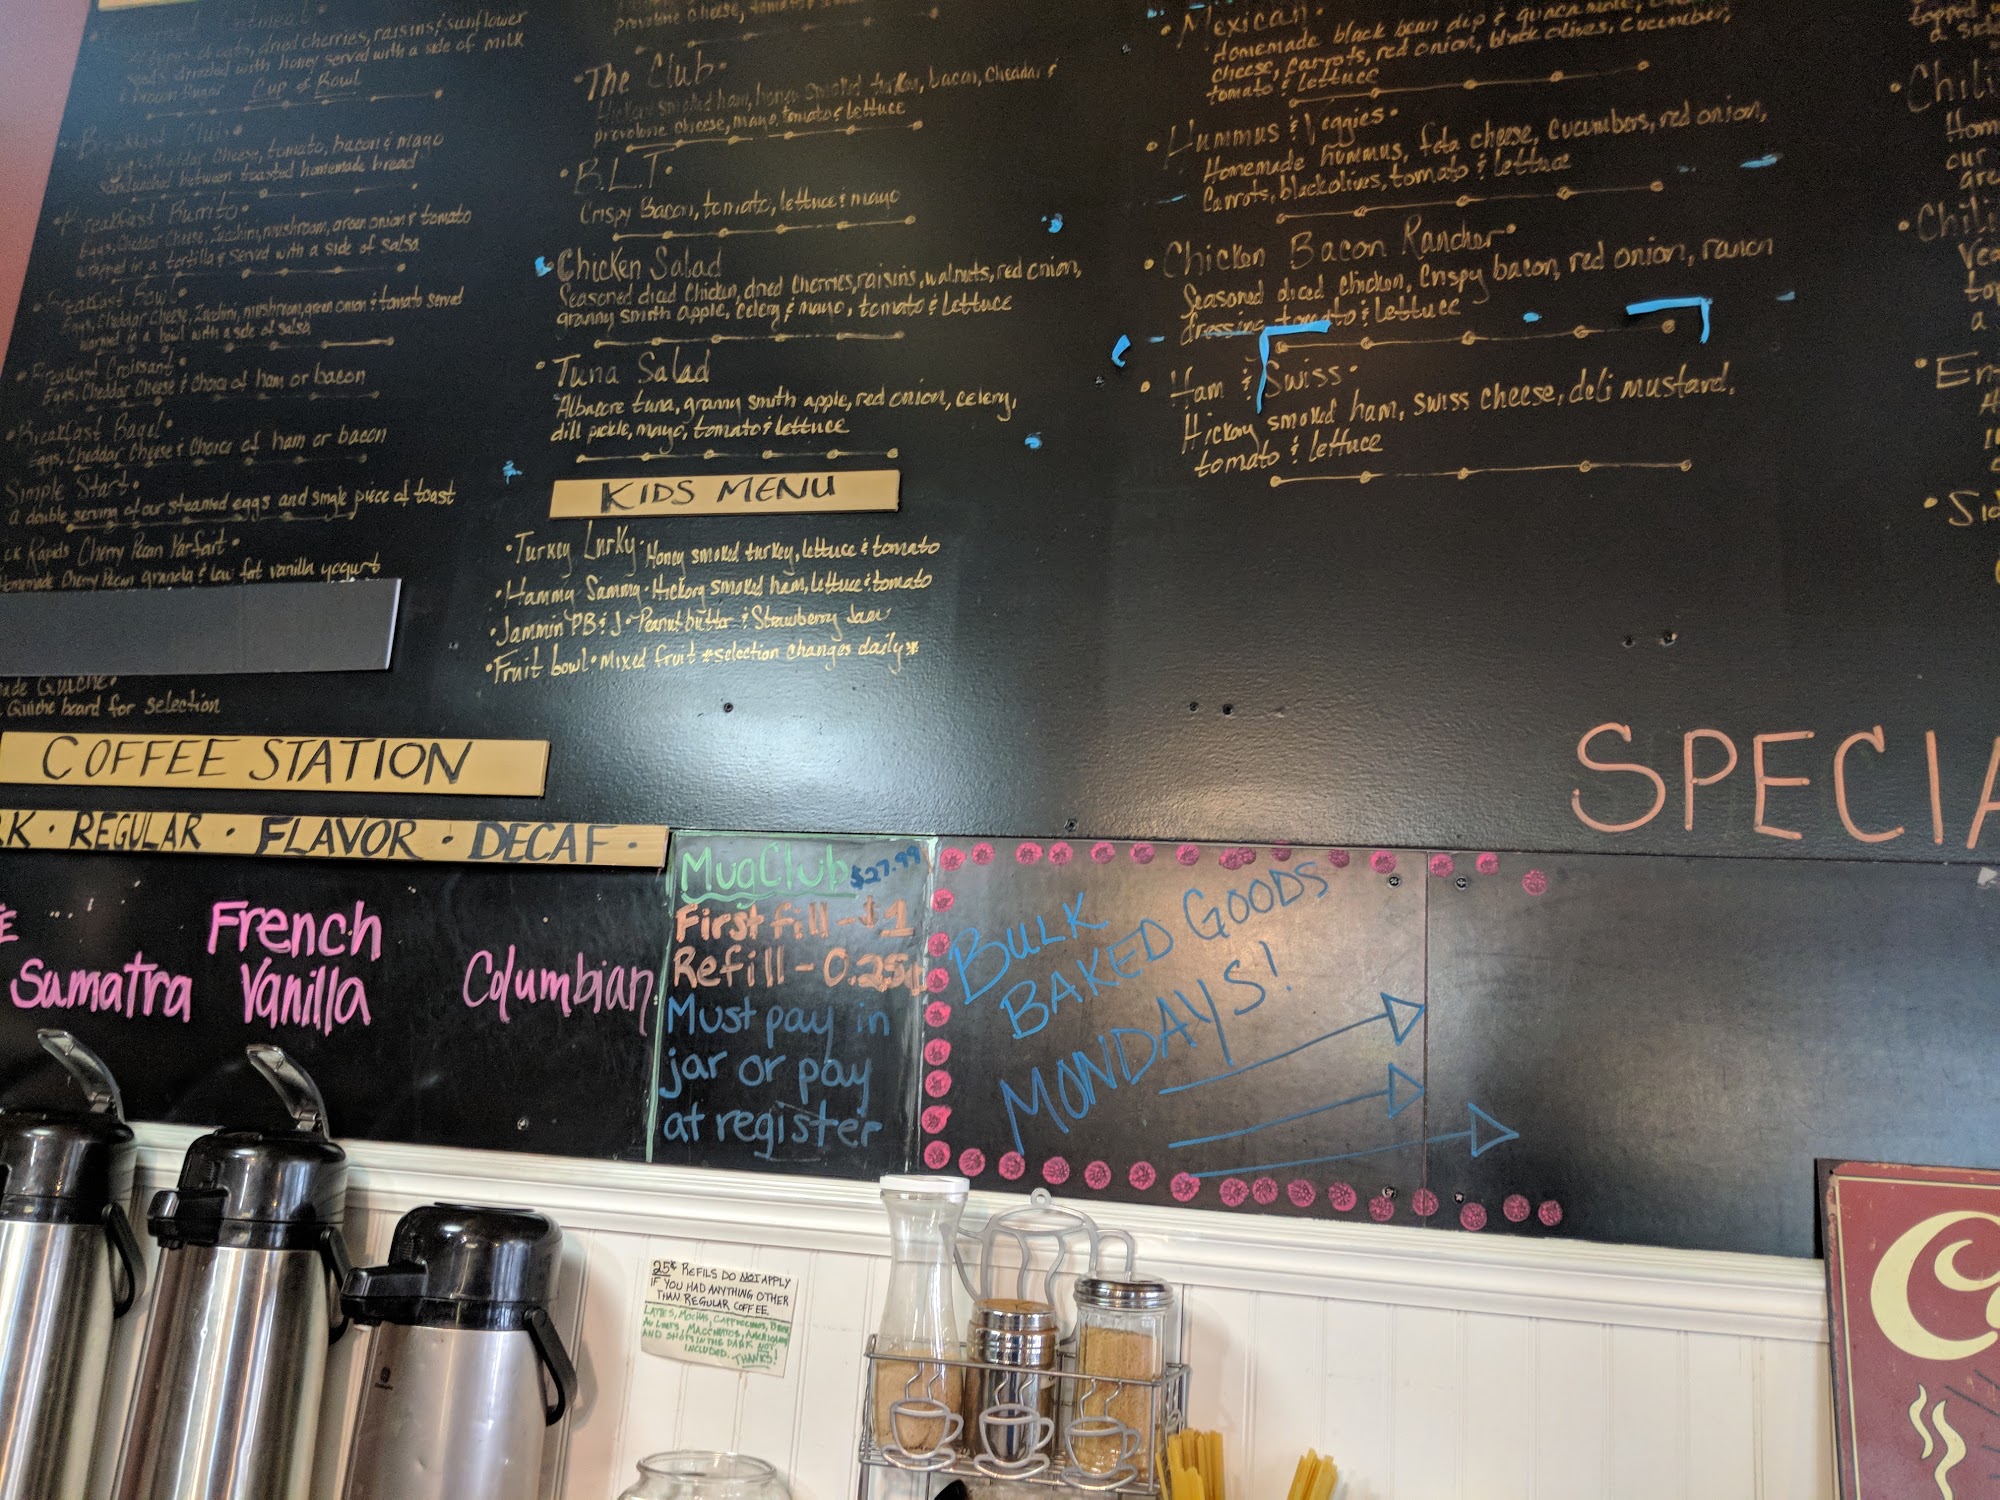 types of oats, dried cherries, raisins, & sunflower
seeds drizzled with honey served with a side of milk
& brown sugar Cup or Bowl
• Breakfast Club •
Eggs, cheddar cheese, tomato, bacon & mayo
sandwiched between toasted homemade bread
• Breakfast Burrito •
Eggs, Cheddar Cheese, Zucchini, mushroom, green onion & tomato
wrapped in a tortilla & served with a side of salsa
• Breakfast Bowl •
Eggs, Cheddar Cheese, Zucchini, mushroom, green onion & tomato served
warmed in a bowl with a side of salsa
• Breakfast Croissant •
Eggs, Cheddar Cheese & Choice of ham or bacon
• Breakfast Bagel •
Eggs, Cheddar Cheese & Choice of ham or bacon
Simple Start •
a double serving of our steamed eggs and single piece of toast
ck Rapids Cherry Pecan Parfait •
Homemade Cherry Pecan granola & low fat vanilla yogurt
ade Quiche •
Quiche board for selection
provolone cheese,
• The Club •
Hickory smoked ham, honey smoked turkey, bacon, cheddar &
provolone cheese, mayo, tomato & lettuce
• B.L.T •
Crispy Bacon, tomato, lettuce & mayo
Chicken Salad
Seasoned diced Chicken, dried Cherries, raisins, walnuts, red onion,
granny smith apple, celery & mayo, tomato & lettuce
• Tuna Salad
Albacore tuna, granny smith apple, red onion, celery,
dill pickle, mayo, tomato & lettuce
KIDS MENU
• Turkey Lurky • Honey smoked turkey, lettuce & tomato
• Hammy Sammy • Hickory smoked ham, lettuce & tomato
• Jammin PB & J • Peanut butter & Strawberry Jam
• Fruit bowl • mixed fruit *selection changes daily*
• Mexican •
Homemade black bean dip & guacamole,
cheese, carrots, red onion, black olives, cucumber,
tomato & lettuce
• Hummus & Veggies •
Homemade hummus, feta cheese, cucumbers, red onion,
Carrots, black olives, tomato & lettuce
• Chicken Bacon Rancher •
Seasoned diced chicken, Crispy bacon, red onion, ranch
dressing tomato & lettuce
• Ham & Swiss •
Hickory smoked ham, swiss cheese, deli mustard,
tomato & lettuce
topped
• Chili
Hom
cur
• Chili
Veg
top
a
• En
• Sid
SPECIA
COFFEE STATION
RK • REGULAR • FLAVOR • DECAF •
E
Sumatra
French
Vanilla
Columbian
Mug Club $27.99
First fill - $1
Refill - 0.25¢
Must pay in
jar or pay
at register
BULK
BAKED GOODS
MONDAYS!
25¢ REFILS DO NOT APPLY
IF YOU HAD ANYTHING OTHER
THAN REGULAR COFFEE.
LATTES, MOCHAS, CAPPUCCINOS,
AU LAITS, MACCHIATOS, AMERICANO
AND SHOTS IN THE DARK NOT
INCLUDED. THANKS!
C